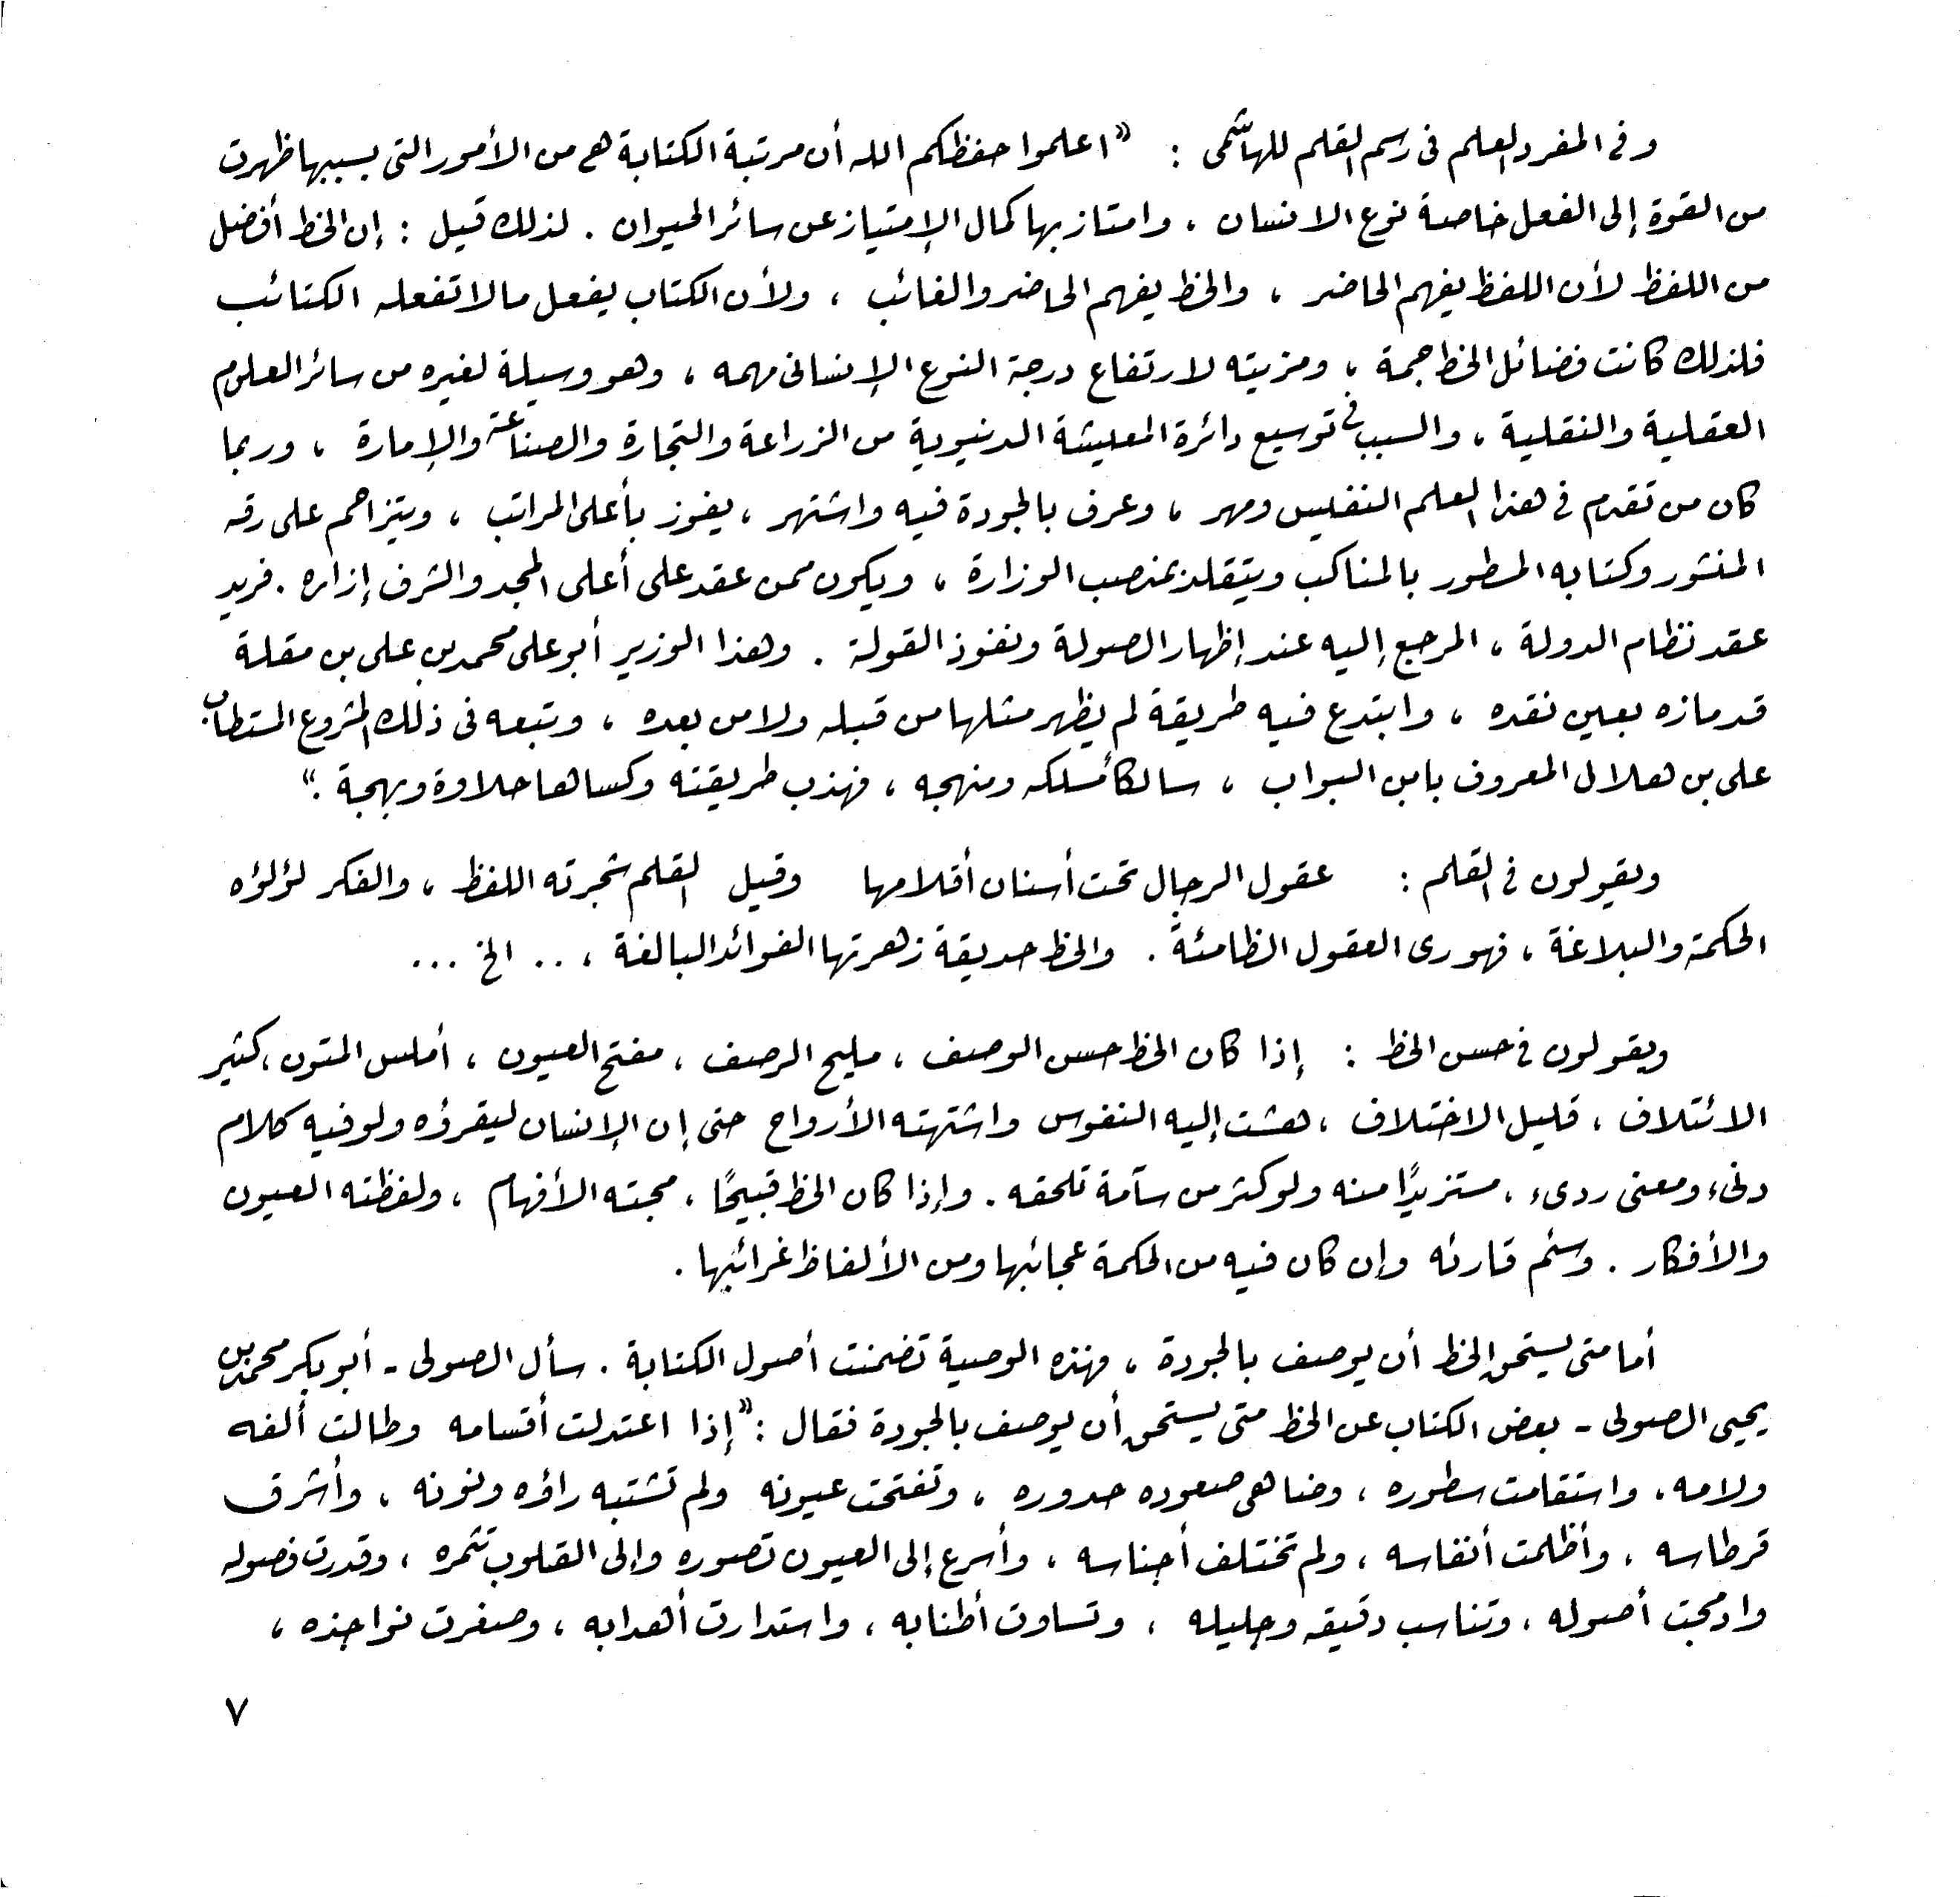 وفى المفرد العلم فى رسم القلم للهاشمى : « اعلموا حفظكم الله أن مرتبة الكتابة هى من الأمور التى بسببها ظهرت
من القوة إلى الفعل خاصة نوع الانسان ، وامتاز بها كمال الإمتياز عن سائر الحيوان . لذلك قيل : إن الخط أفضل
من اللفظ لأن اللفظ يفهم الحاضر ، والخط يفهم الحاضر والغائب ، ولأن الكتاب يفعل مالا تفعله الكتائب
فلذلك كانت فضائل الخط جمة ، ومزيته لارتفاع درجة النوع الإنسانى مهمه ، وهو وسيلة لغيره من سائر العلوم
العقلية والنقلية ، والسبب فى توسيع دائرة المعيشة الدنيوية من الزراعة والتجارة والصناعة والإمارة ، وربما
كان من تقدم فى هذا العلم النفيس ومهر ، وعرف بالجودة فيه واشتهر ، يفوز بأعلى المراتب ، ويتزاحم على رقه
المنشور وكتابه المسطور بالمناكب ويتقلد بمنصب الوزارة ، ويكون ممن عقد على أعلى المجد والشرف إزاره . فريد
عقد نظام الدولة ، المرجع إليه عند إظهار الصولة ونفوذ القولة . وهذا الوزير أبو على محمد بن على بن مقلة
قد مازه بعين نقده ، وابتدع فيه طريقة لم يظهر مثلها من قبله ولا من بعده ، وتبعه فى ذلك المشروع المستطاب
على بن هلال المعروف بابن البواب ، سالكا مسلكه ومنهجه ، فهذب طريقته وكساها حلاوة وبهجة . »
ويقولون فى القلم : عقول الرجال تحت أسنان أقلامها وقيل القلم شجرته اللفظ ، والفكر لؤلؤه
الحكمة والبلاغة ، فهو رى العقول الظامئة . والخط حديقة زهرتها الفوائد البالغة ، .. الخ ...
ويقولون فى حسن الخط : إذا كان الخط حسن الوصف ، مليح الرصف ، مفتح العيون ، أملس المتون ، كثير
الائتلاف ، قليل الاختلاف ، هشت إليه النفوس واشتهته الأرواح حتى إن الإنسان ليقرؤه ولو فيه كلام
دنىء ومعنى ردىء ، مستزيدًا منه ولو كثر من سآمة تلحقه . وإذا كان الخط قبيحًا ، مجته الأفهام ، ولفظته العيون
والأفكار . وسئم قارئه وإن كان فيه من الحكمة عجائبها ومن الألفاظ غرائبها .
أما متى يستحق الخط أن يوصف بالجودة ، فهذه الوصية تضمنت أصول الكتابة . سأل الصولى - أبو بكر محمد بن
يحيى الصولى - بعض الكتاب عن الخط متى يستحق أن يوصف بالجودة فقال : « إذا اعتدلت أقسامه وطالت ألفه
ولامه ، واستقامت سطوره ، وضاهى صعوده حدوره ، وتفتحت عيونه ولم تشتبه راؤه ونونه ، وأشرق
قرطاسه ، وأظلمت أنقاسه ، ولم تختلف أجناسه ، وأسرع إلى العيون تصوره وإلى القلوب تثمره ، وقدرت فصوله
وادمجت أصوله ، وتناسب دقيقه وجليله ، وتساوت أطنابه ، واستدارت أهدابه ، وصغرت نواجذه ،
٧